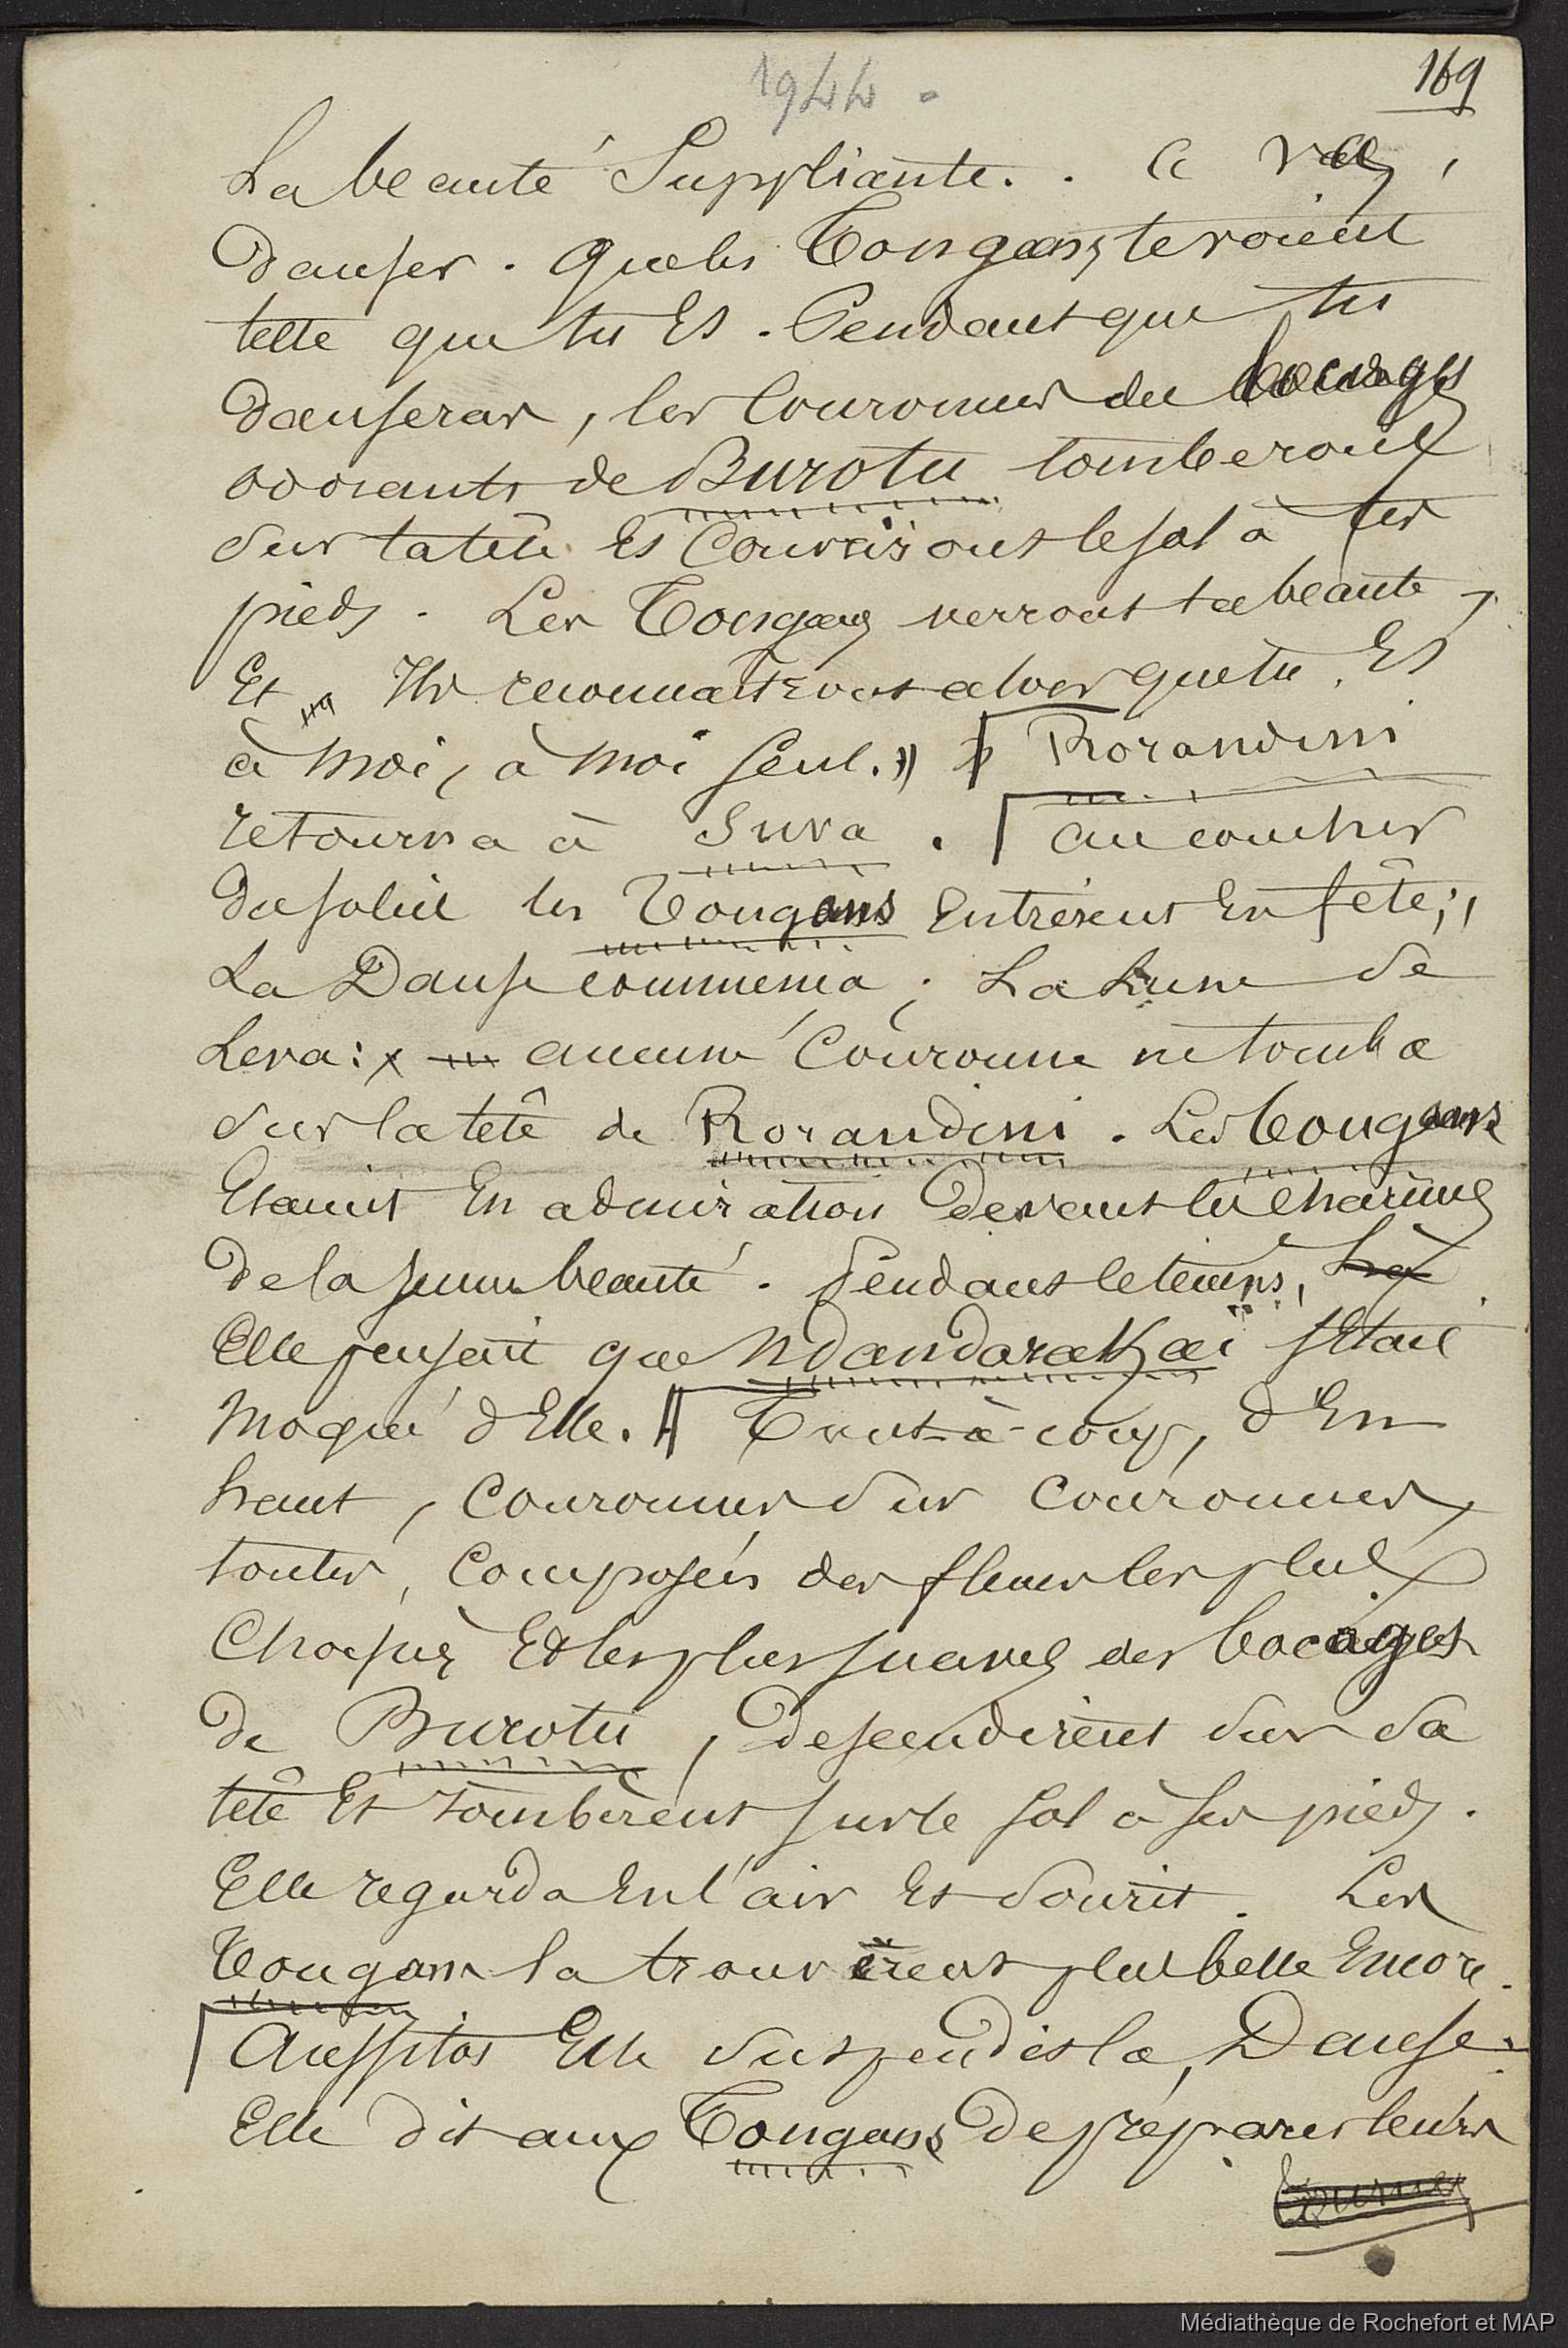 1944.
169
La beauté Suppliante. . Ce
danser. Que les Tongans te voient
telle que tu Es. Pendant que tu
Danseras, les Couronnes des bocages
odorants de Burotu tomberont
sur ta tête Et Couvriront le sol à tes
pieds. Les Tongans verront ta beauté,
Et Ils reconnaîtront alors que tu Es
à moi, à moi seul. » Rorandini
retourna à Suva. au coucher
du soleil les Tongans Entrèrent En fête;
La Danse commença; La Lune se
Leva: aucune Couronne ne tomba
sur la tête de Rorandini. Les Tongans
Etaient En admiration Devant les Charmes
De la jeune beauté. Pendant le temps,
Elle pensait que Ndandarakaï s'Etait
Moqué d'Elle. Tout-à-coup, d'En
haut, Couronnes sur Couronnes,
toutes, Composées des fleurs les plus
Choisies Et les plus suaves des bocages
de Burotu, Descendirent sur sa
tête Et tombèrent sur le sol à ses pieds.
Elle regarda En l'air Et Sourit. Les
Tongans la trouvèrent plus belle Encore.
Aussitôt Elle Suspendit la Danse.
Elle dit aux Tongans De préparer leurs
Tournez
Médiathèque de Rochefort et MAP